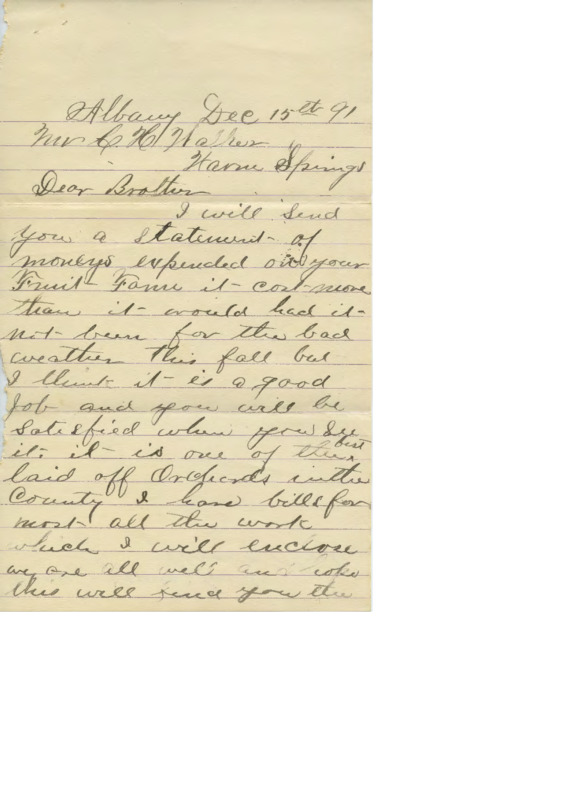 Albany Dec 15th 91
Mr C H Walker
Warm Springs
Dear Brother
I will send
you a statement of
moneys expended on your
Fruit Farm it cost more
than it would had it
not been for the bad
weather this fall but
I think it is a good
Job and you will be
satisfied when you see
it. it is one of the best
laid off Orchards in the
County I have bills for
most all the work
which I will enclose
we are all well and hope
this will find you the